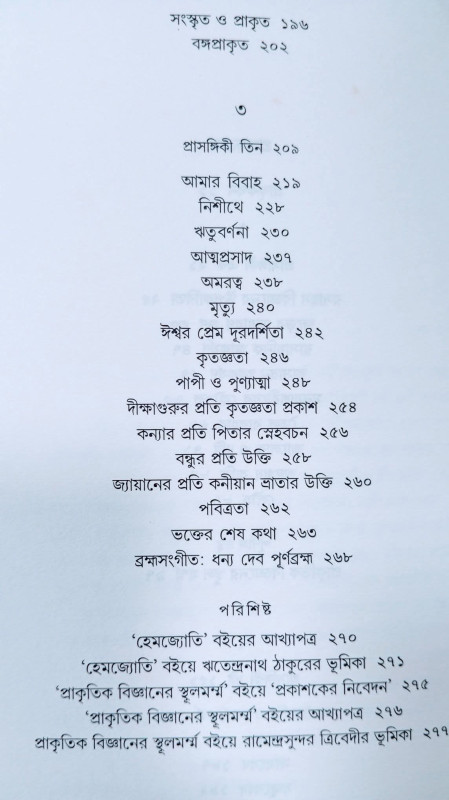 সংস্কৃত ও প্রাকৃত ১৯৬
বঙ্গপ্রাকৃত ২০২
৩
প্রাসঙ্গিকী তিন ২০৯
আমার বিবাহ ২১৯
নিশীথে ২২৮
ঋতুবর্ণনা ২৩০
আত্মপ্রসাদ ২৩৭
অমরত্ব ২৩৮
মৃত্যু ২৪০
ঈশ্বর প্রেম দূরদর্শিতা ২৪২
কৃতজ্ঞতা ২৪৬
পাপী ও পুণ্যাত্মা ২৪৮
দীক্ষাগুরুর প্রতি কৃতজ্ঞতা প্রকাশ ২৫৪
কন্যার প্রতি পিতার স্নেহবচন ২৫৬
বন্ধুর প্রতি উক্তি ২৫৮
জ্যায়ানের প্রতি কনীয়ান ভ্রাতার উক্তি ২৬০
পবিত্রতা ২৬২
ভক্তের শেষ কথা ২৬৩
ব্রহ্মসংগীত: ধন্য দেব পূর্ণব্রহ্ম ২৬৮
পরিশিষ্ট
‘হেমজ্যোতি’ বইয়ের আখ্যাপত্র ২৭০
‘হেমজ্যোতি’ বইয়ে ঋতেন্দ্রনাথ ঠাকুরের ভূমিকা ২৭১
‘প্রাকৃতিক বিজ্ঞানের স্থূলমর্ম্ম’ বইয়ে ‘প্রকাশকের নিবেদন’ ২৭৫
‘প্রাকৃতিক বিজ্ঞানের স্থূলমর্ম্ম’ বইয়ের আখ্যাপত্র ২৭৬
প্রাকৃতিক বিজ্ঞানের স্থূলমর্ম্ম বইয়ে রামেন্দ্রসুন্দর ত্রিবেদীর ভূমিকা ২৭৭